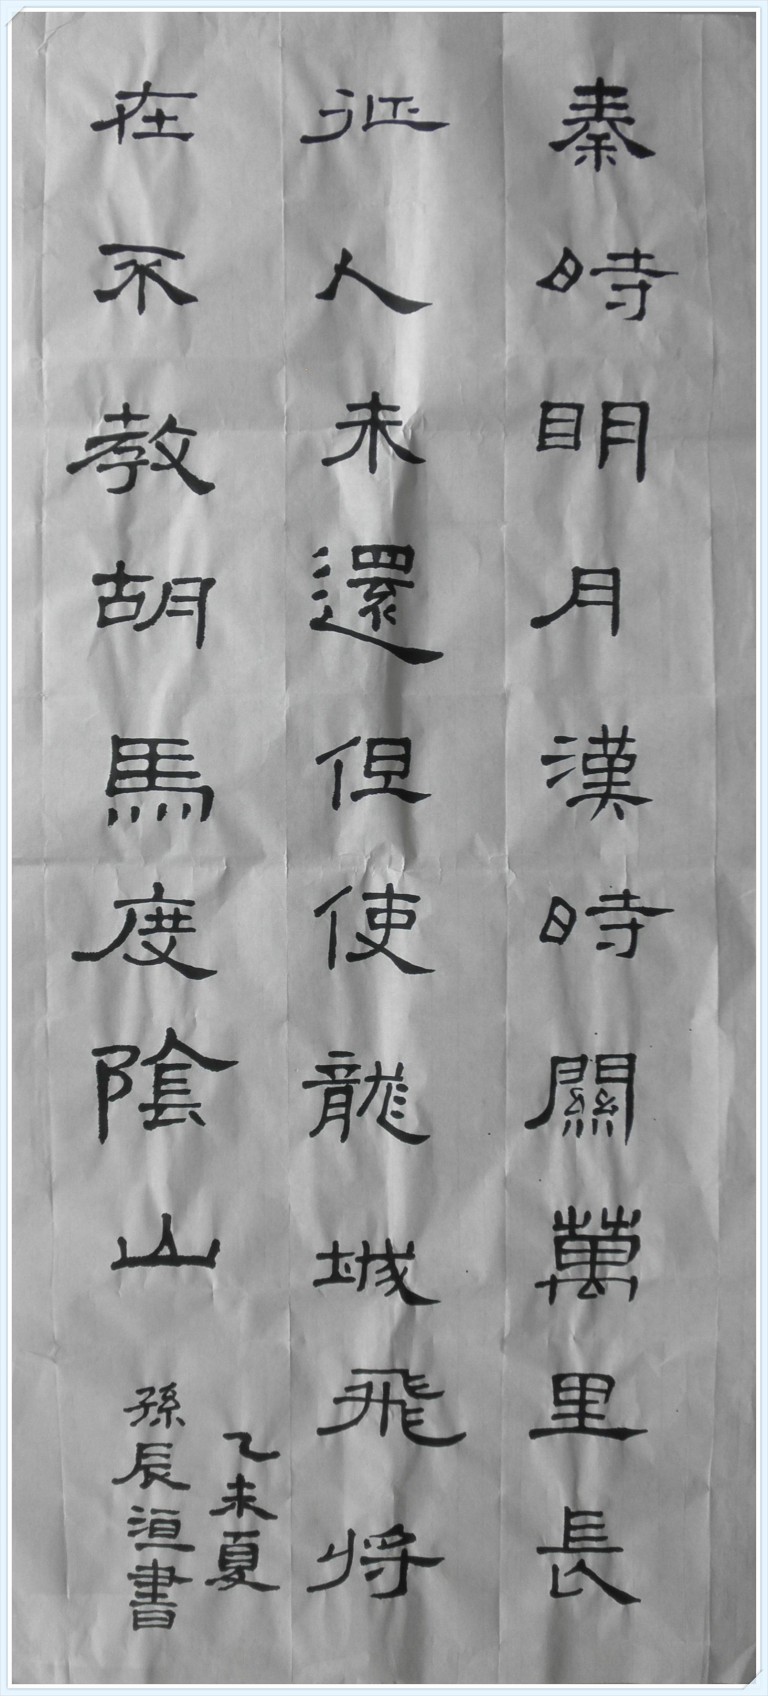 秦時明月漢時關萬里長
征人未還但使龍城飛将
在不教胡馬度陰山
乙未夏
孫辰洹書